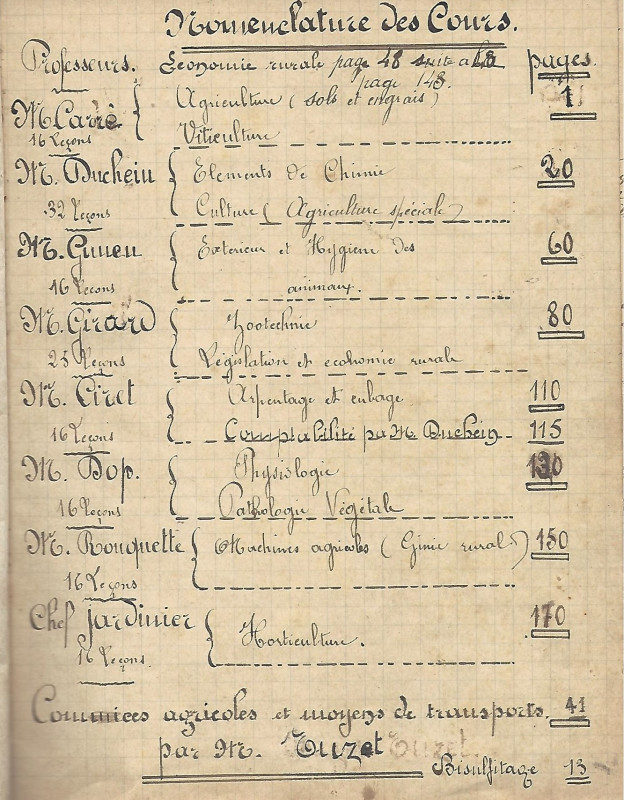 Nomenclature des Cours.
Professeurs. Economie rurale page 48 suite a la pages.
page 148.
M. Carré { Agriculture (sols et engrais) 1
16 Leçons Viticulture
M. Duchein { Elements de Chimie 20
32 Leçons Culture (Agriculture spéciale)
{ Exterieur et Hygiene des 60
16 Leçons animaux.
M. Girard { Zootechnie 80
25 Leçons Législation et economie rurale
M. Ciret { Arpentage et cubage 110
16 Leçons Comptabilité par M. Duchein 115
M. Dop. { Physiologie 130
16 Leçons Pathologie Végétale
M. Rouquette { Machines agricoles (Génie rural) 150
16 Leçons
Chef Jardinier { Horticulture. 170
16 Leçons.
Commices agricoles et moyens de transports. 41
par M. Tuzet Tuzet.
Bisulfitage 13